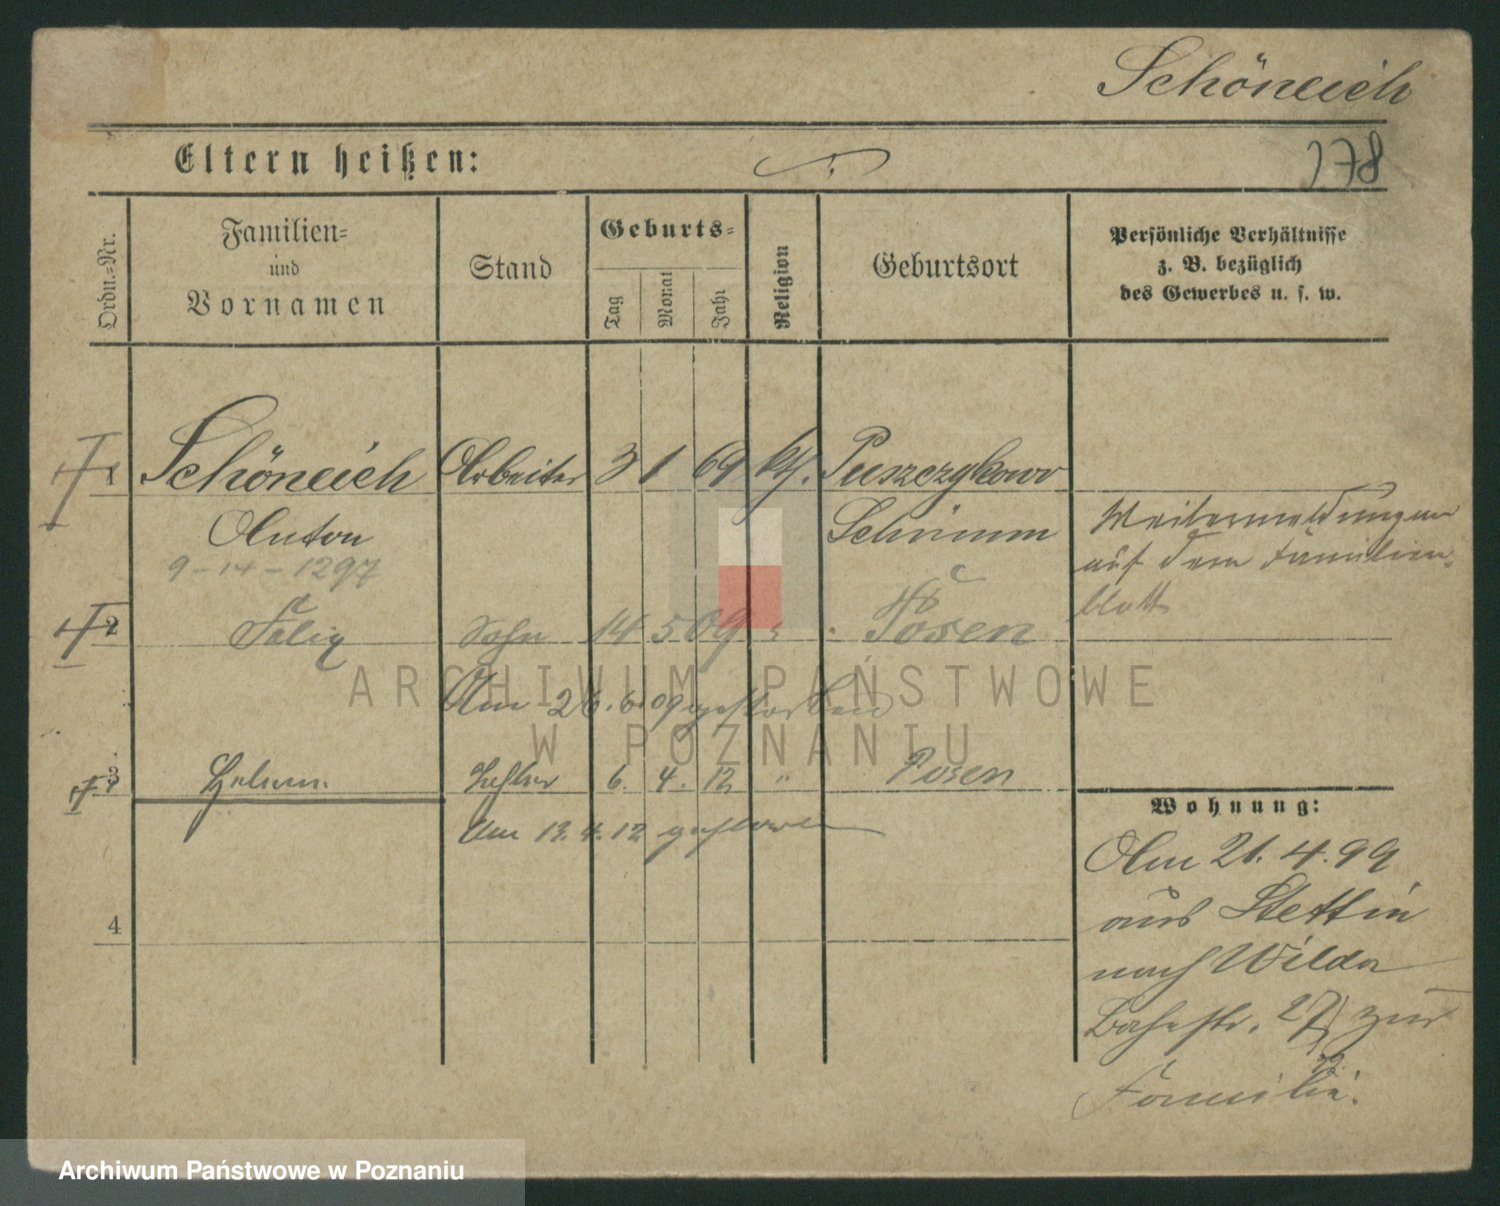 Schöneich
Eltern heißen:
278
Ordn.=Nr.
Familien=
und
Vornamen
Stand
Geburts=
Tag
Monat
Jahr
Religion
Geburtsort
Persönliche Verhältnisse
z. B. bezüglich
des Gewerbes u. s. w.
1 Schöneich Arbeiter 3 1 69 kth. Puszczykowo
Anton Schrimm
9-14-1297
Weitermeldungen
auf dem Familien-
blatt
2 Felix Sohn 14 5 09 " Posen
Am 26.6.09 gestorben
3 Tochter 6. 4. 12 " Posen
Am 13.4.12 gestorben
4
Wohnung:
Am 21.4.99
aus Stettin
nach Wilda
27 zur
Familie.
ARCHIWUM PAŃSTWOWE
W POZNANIU
Archiwum Państwowe w Poznaniu